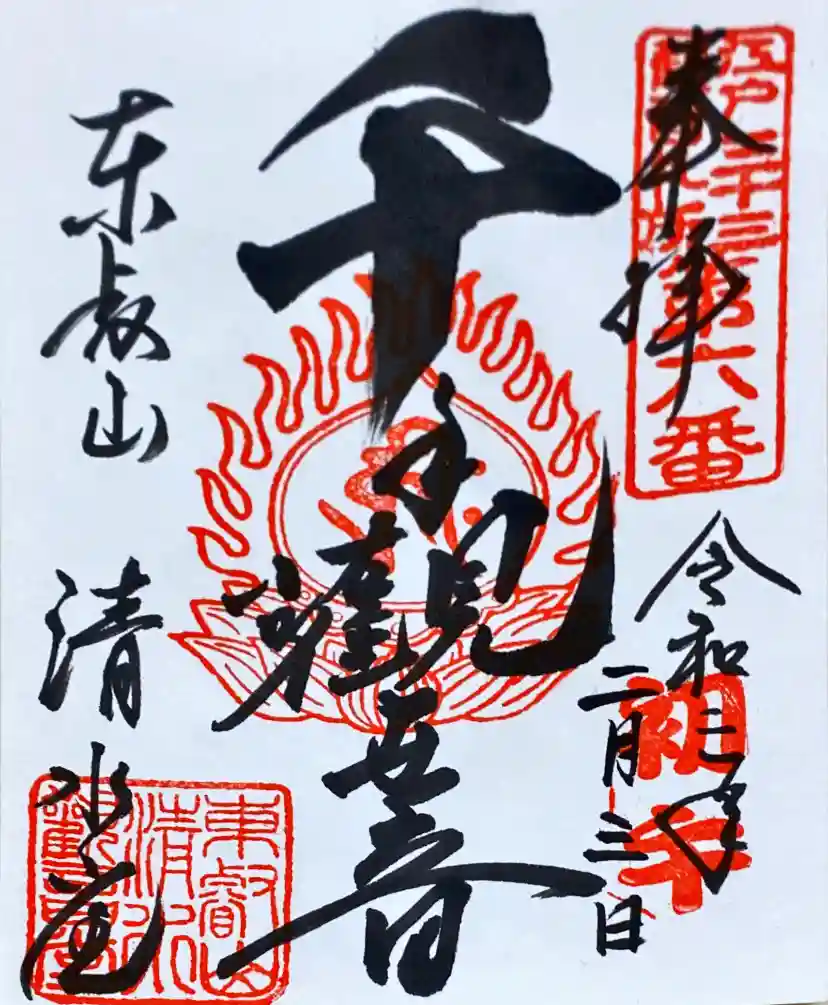 奉拝
江戸三十三
第六番
令和三年
二月三日
初午
千手觀世音
東叡山
清水堂
東叡山
清水
觀音堂